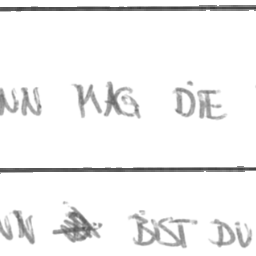 NN MAG DIE
NN BIST DU